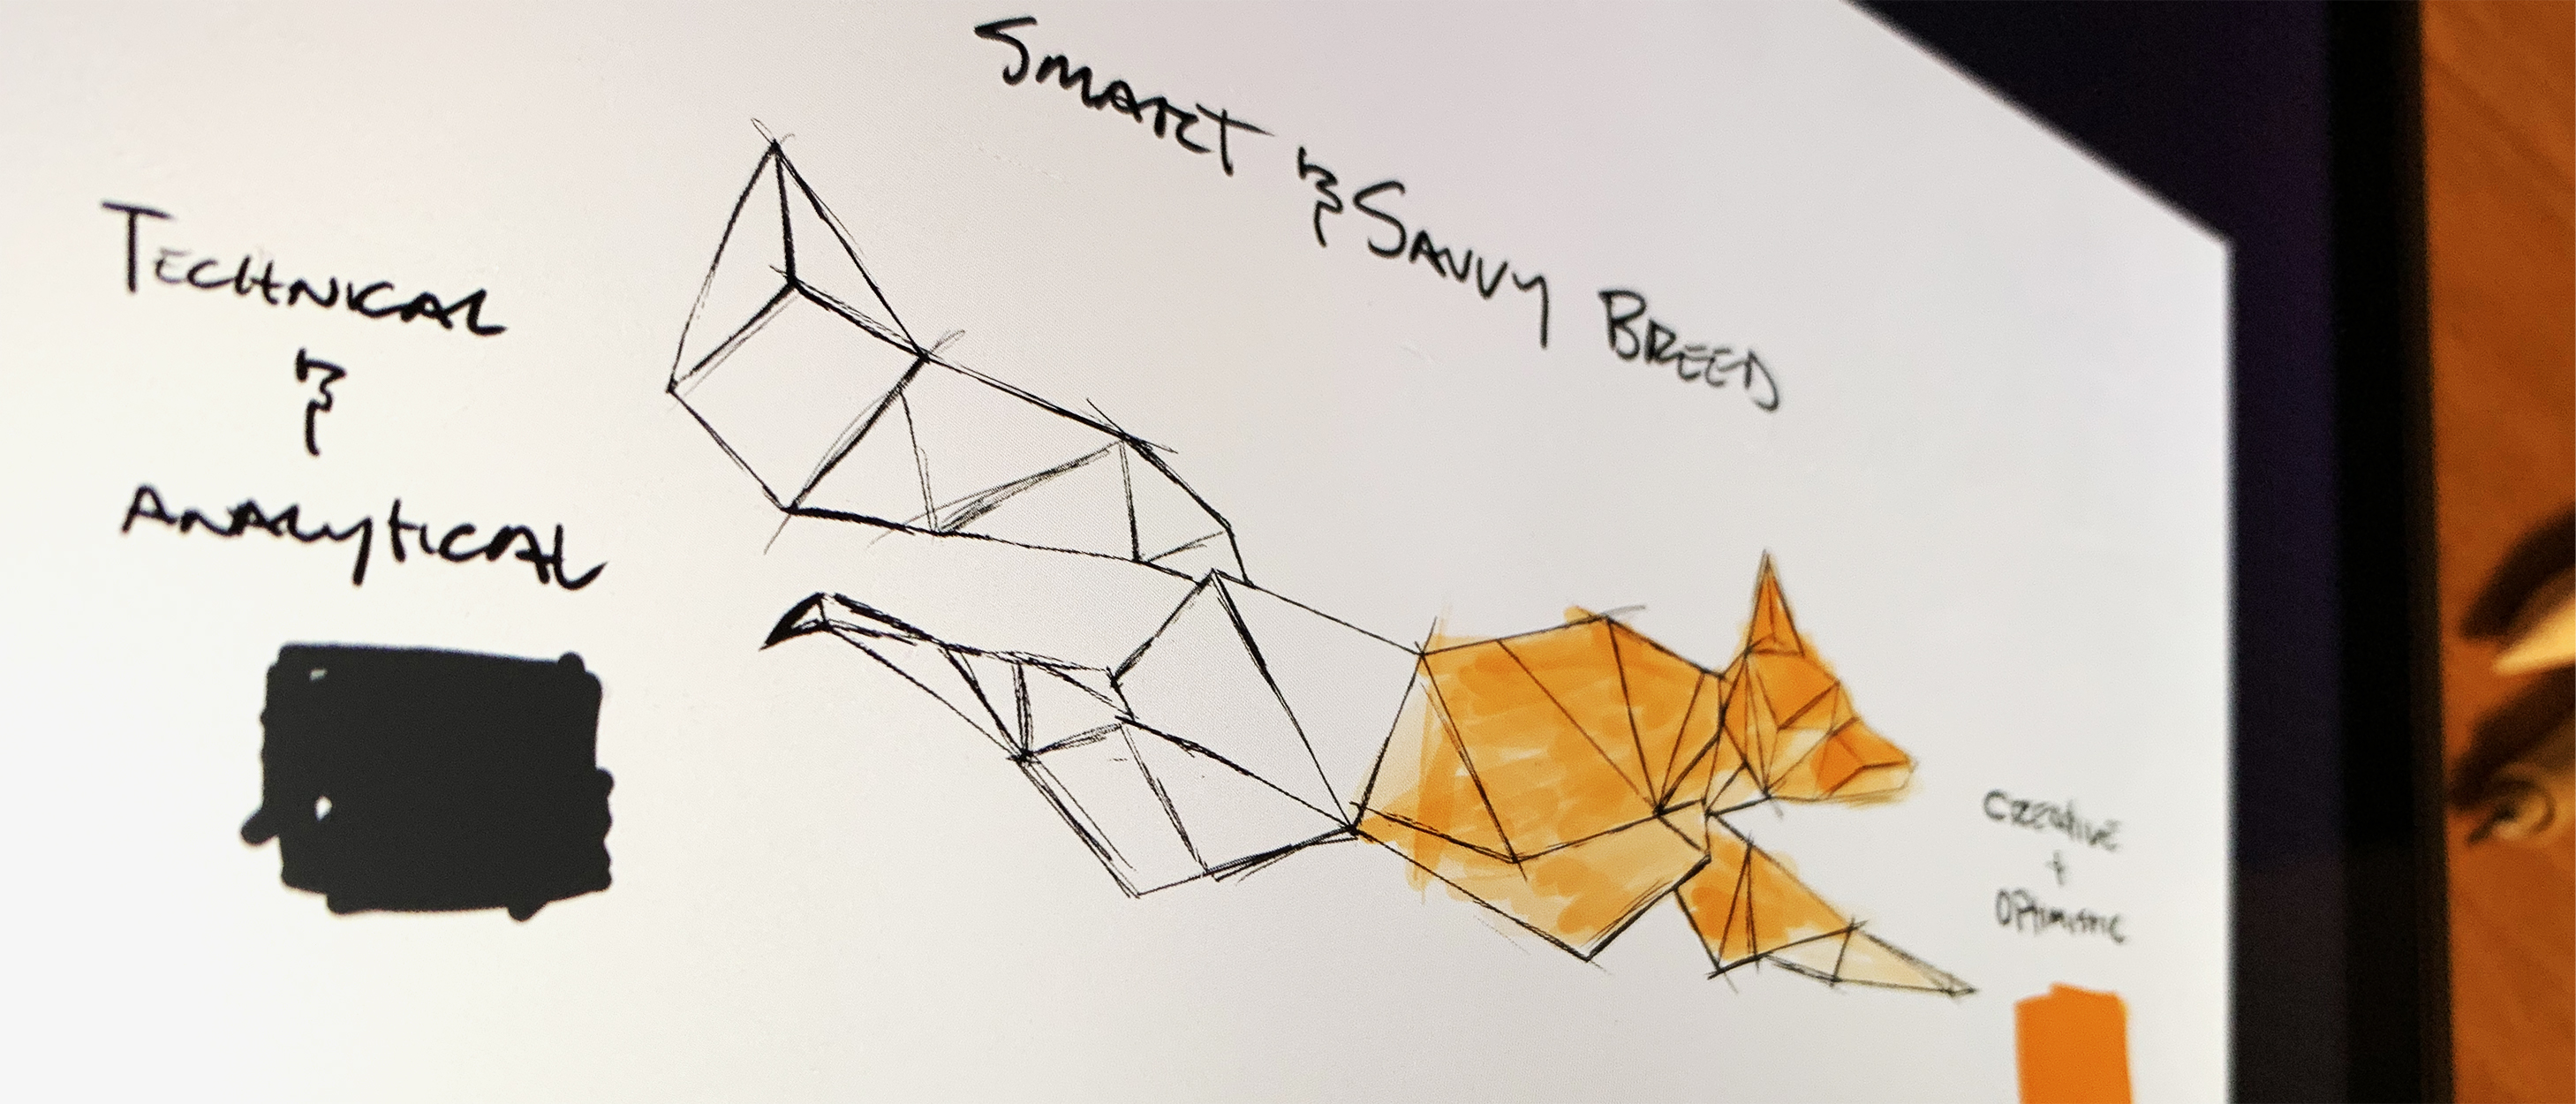 SMART & SAVVY BREED
TECHNICAL
&
ANALYTICAL
CREATIVE
+
OPTIMISTIC